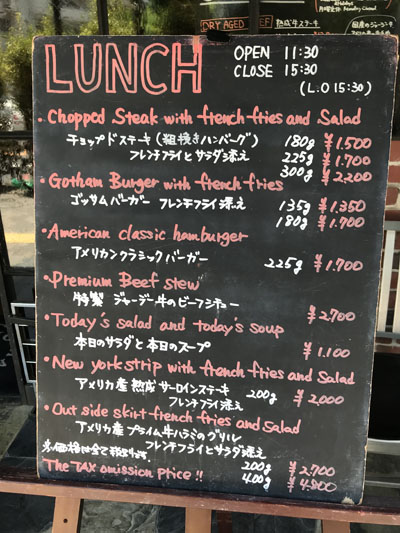 DRY AGED BEEF 熟成ステーキ
LUNCH
OPEN 11:30
CLOSE 15:30
(L.O 15:30)
• Chopped Steak with french fries and Salad
チョップドステーキ (粗挽きハンバーグ) 180g ¥1.500
フレンチフライとサラダ添え 225g ¥1.700
300g ¥2,200
• Gotham Burger with french fries
ゴッサムバーガー フレンチフライ添え 135g ¥1350
180g ¥1.700
• American classic hamburger
アメリカンクラシックバーガー 225g ¥1.700
• Premium Beef stew
特製 ジャージー牛のビーフシチュー ¥2700
• Today's salad and today's soup
本日のサラダと本日のスープ ¥1.100
• New york strip with french fries and Salad
アメリカ産 熟成 サーロインステーキ 200g ¥2,000
フレンチフライ添え
• Out side skirt french fries and Salad
アメリカ産 プライム牛ハラミのグリル
フレンチフライとサラダ添え
※価格は全て税抜です。
The TAX omission Price !! 200g ¥2.700
400g ¥4.800